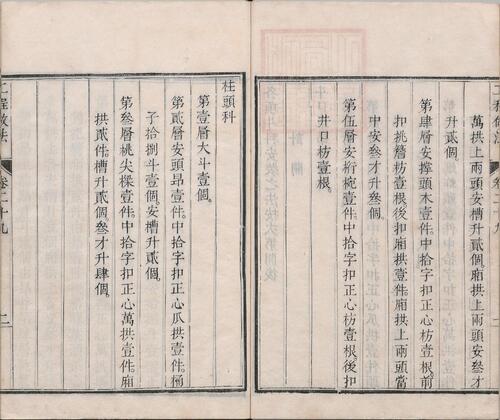 萬拱上兩頭安叄才
升貳個。
第肆層安撑頭木壹件。中拾字扣正心枋壹根。前
扣挑簷枋壹根。後扣廂拱壹件。廂拱上兩頭當
中安叄才升叄個。
第伍層安桁椀壹件。中拾字扣正心枋壹根後扣
井口枋壹根。
工程做法
卷二十九
二
柱頭科
第壹層大斗壹個。
第貳層安頭昂壹件。中拾字扣正心瓜拱壹件。桶
子拾捌斗壹個。安槽升貳個。
第叄層桃尖樑壹件。中拾字扣正心萬拱壹件。廂
拱貳件。槽升貳個。叄才升肆個。